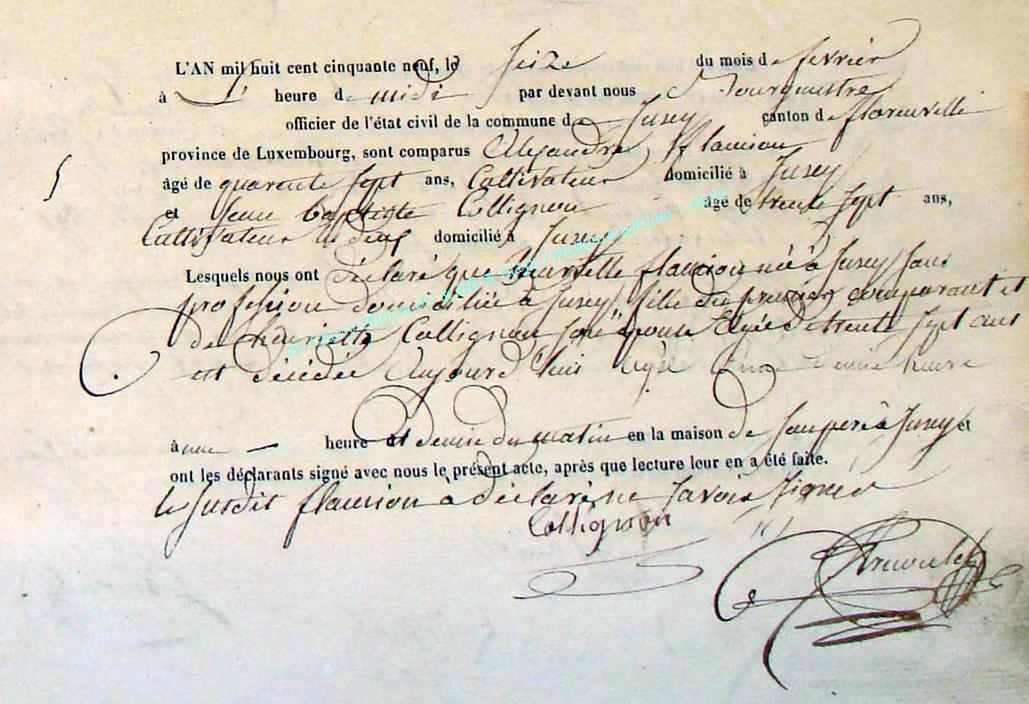 L'AN mil huit cent cinquante neuf, le Seize du mois de fevrier
à L' heure de midi par devant nous Bourgmestre
officier de l'état civil de la commune de Jusey canton de florenville
province de Luxembourg, sont comparus Alexandre flamion
âgé de quarente Sept ans, Cultivateur domicilié à Jusey
et Jean baptiste Collignon âgé de trente Sept ans,
Cultivateur domicilié à Jusey
Lesquels nous ont déclaré que flamion née à Jusey Sans
profession domiciliée à Jusey fille du premier comparant et
de henriette Collignon Son epouse Agée de trente Sept ans
est décédée Aujourd'huis demie heure
à une heure et demie du matin en la maison de Son pere à Jusey et
ont les déclarants signé avec nous le présent acte, après que lecture leur en a été faite.
le Susdit flamion à déclaré ne Savoir Signer
Collignon